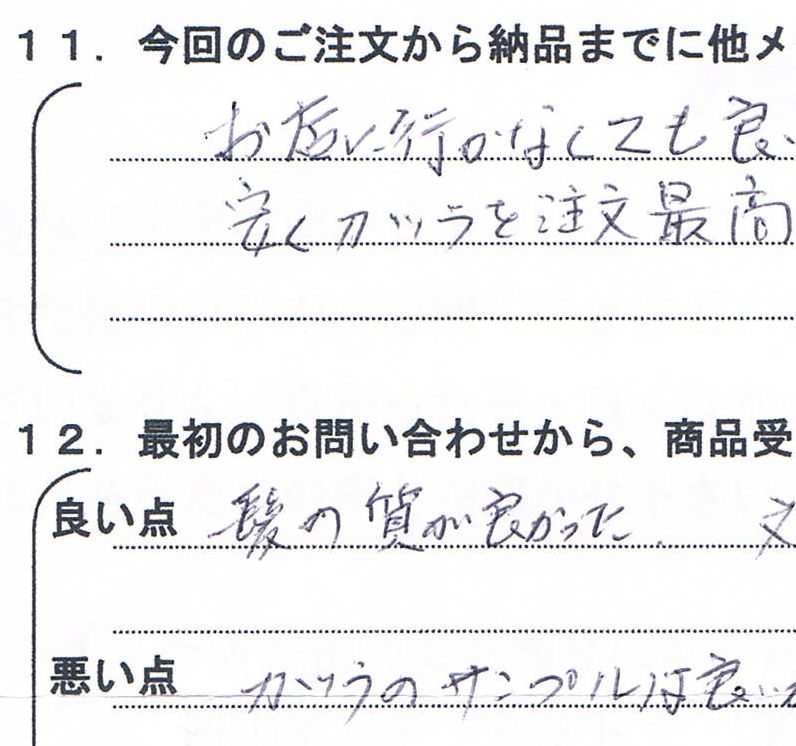 11. 今回のご注文から納品までに他メ
お店に行かなくても良い
安くカツラを注文最高
12. 最初のお問い合わせから、商品受
良い点 髪の質が良かった. 文
悪い点 カツラのサンプルは良い